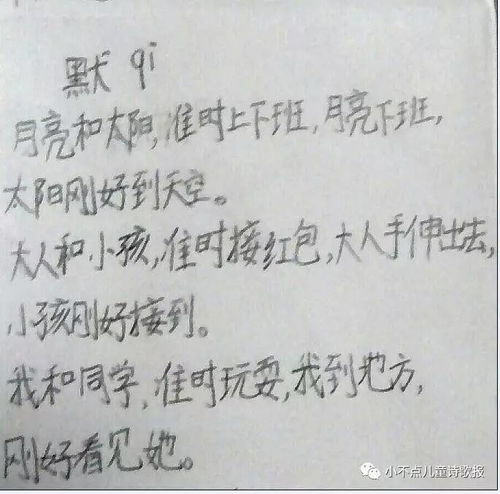 默qi
月亮和太阳,准时上下班,月亮下班,
太阳刚好到天空。
大人和小孩,准时接红包,大人手伸出去,
小孩刚好接到。
我和同学,准时玩耍,我到地方,
刚好看见她。
小不点儿童诗歌报